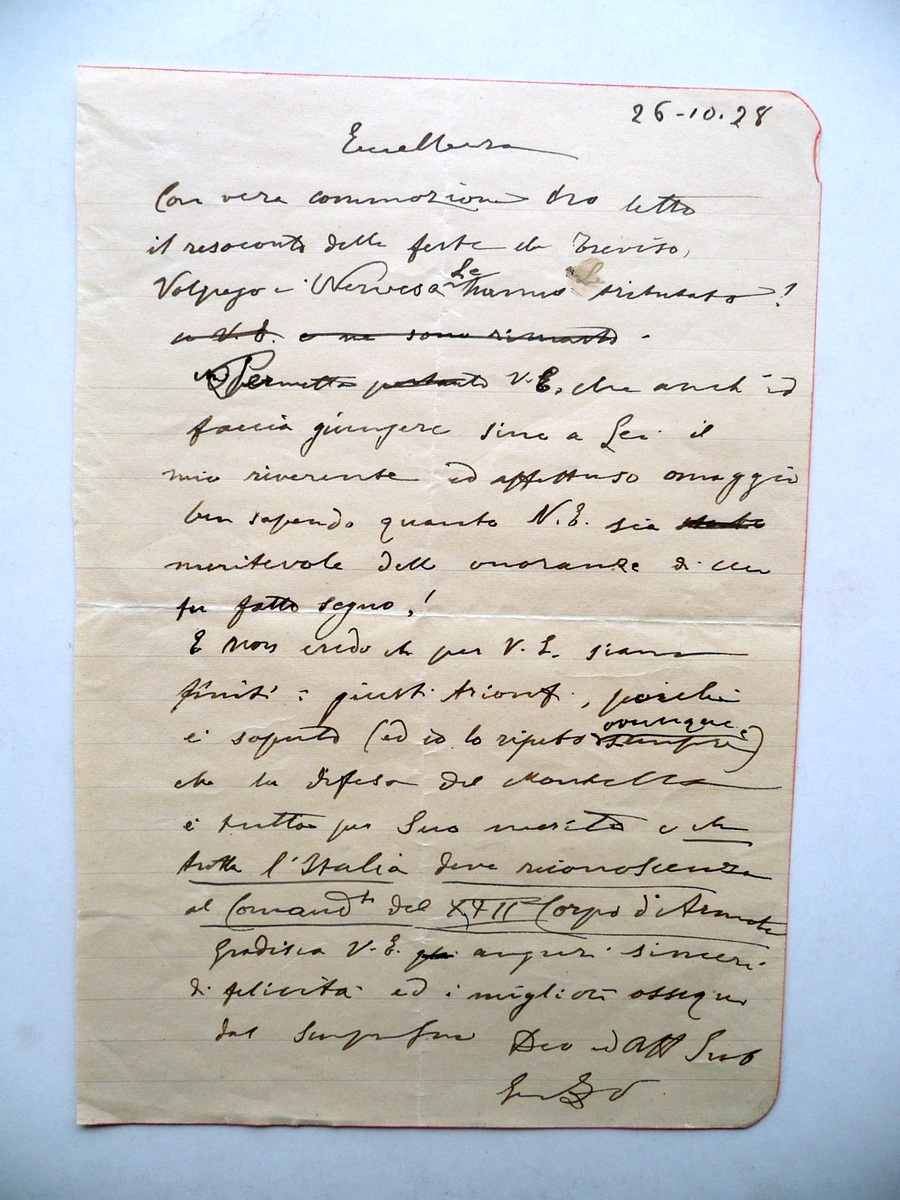 26-10.28
Eccellenza
Con vera commozione ho letto
il resoconto delle feste che Treviso,
Volpago e Nervesa Le hanno tributato!
a V.E. e ne sono rimasto -
Permetta pertanto V.E. che anch'io
faccia giungere sino a Lei il
mio riverente ed affettuso omaggio
ben sapendo quanto V.E. sia
meritevole delle onoranze di cui
fu fatto segno!
E non credo che per V.E. siano
finiti i giusti trionfi, poichè
è saputo (ed io lo ripeto ovunque sempre)
che la difesa del Montello
è tutto per Suo merito e che
tutta l'Italia deve riconoscenza
al Comandte del XXII Corpo d'Armata
Gradisca V.E. auguri sinceri
di felicità ed i migliori ossequi
dal sempre Suo Dev ed Aff Sub